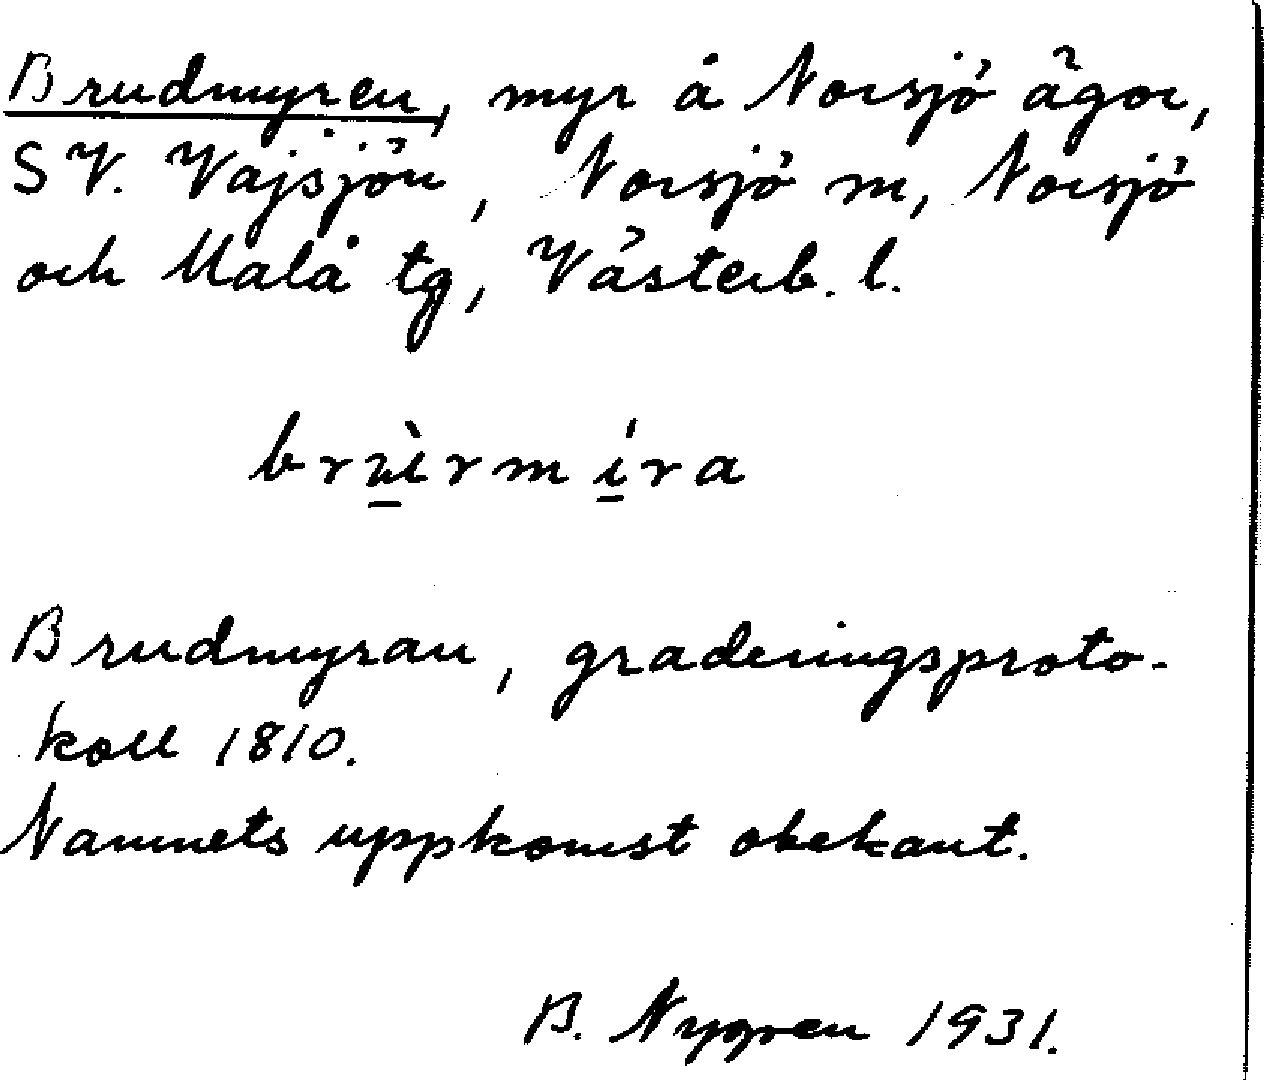 Brudmyren, myr å Norsjö ägor,
SV. Vajsjön, Norsjö m, Norsjö
och Malå tg, Västerb. l.
brùrmíra
Brudmyran, graderingsproto-
koll 1810.
Namnets uppkomst obekant.
B. Nygren 1931.